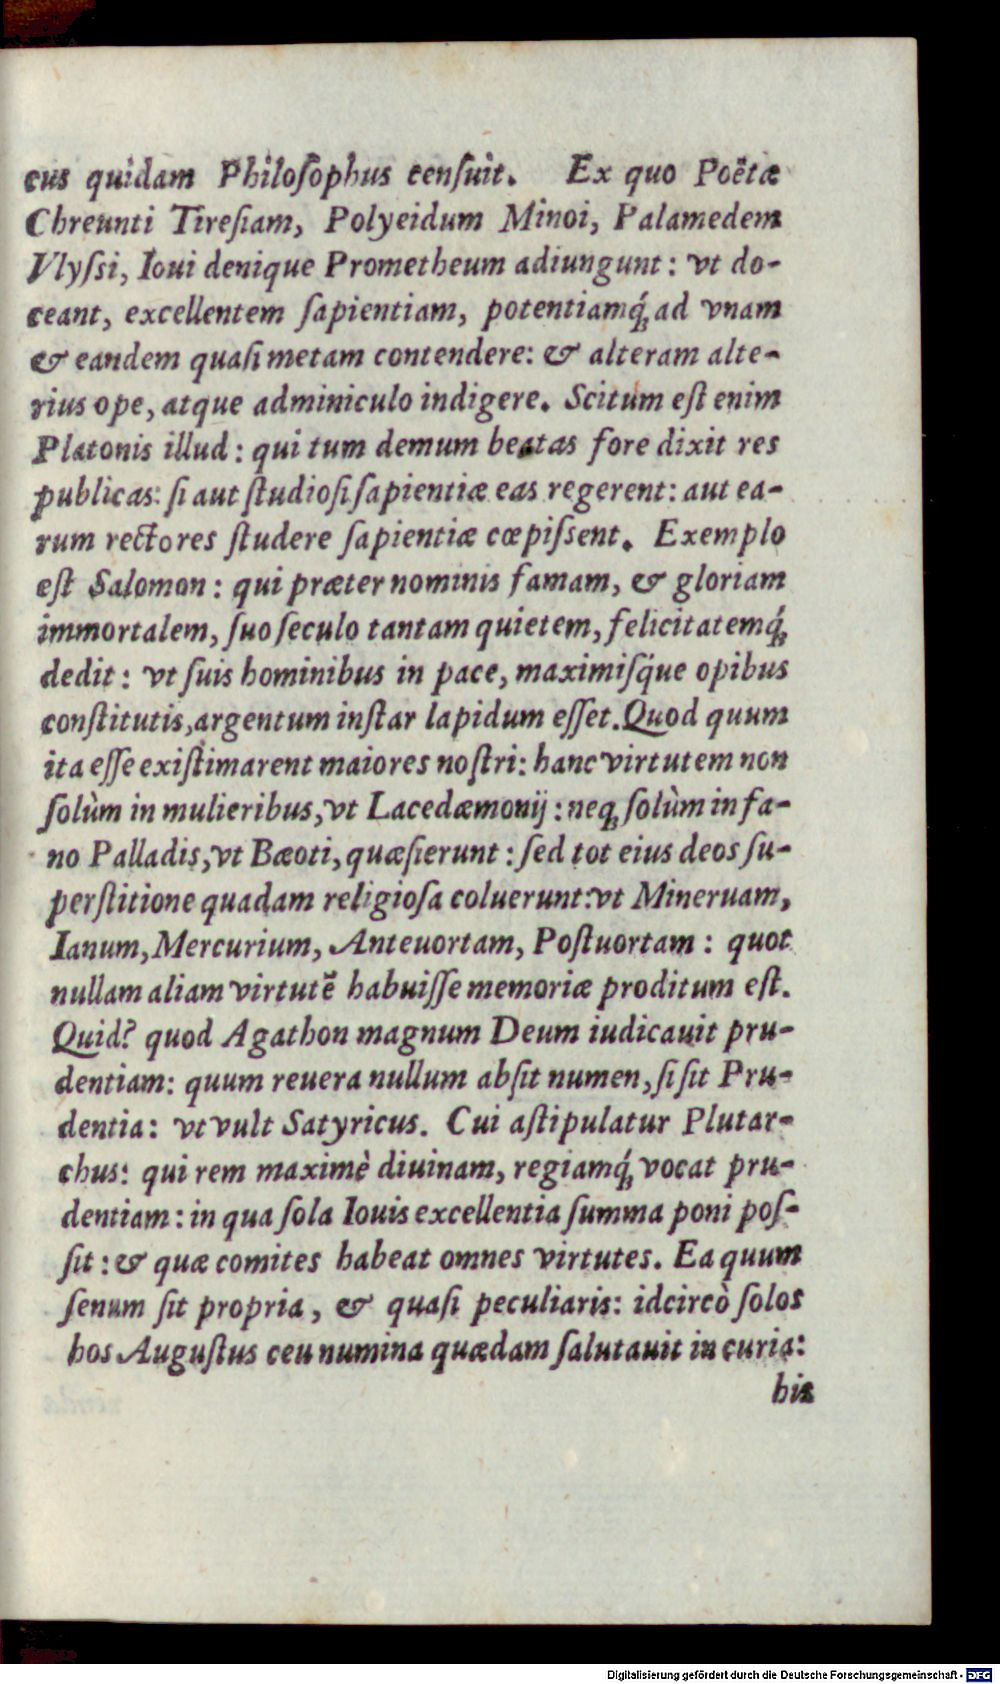 cus quidam Philoſophus cenſuit. Ex quo Poëtæ
Chreunti Tireſiam, Polyeidum Minoi, Palamedem
Vlyſsi, Ioui denique Prometheum adiungunt: vt do-
ceant, excellentem ſapientiam, potentiamq́ꝫ ad vnam
& eandem quaſi metam contendere: & alteram alte-
rius ope, atque adminiculo indigere. Scitum eſt enim
Platonis illud: qui tum demum beatas fore dixit res
publicas: ſi aut ſtudioſi ſapientiæ eas regerent: aut ea-
rum rectores ſtudere ſapientiæ cœpiſsent. Exemplo
eſt Salomon: qui præter nominis famam, & gloriam
immortalem, ſuo ſeculo tantam quietem, felicitatemq́ꝫ
dedit: vt ſuis hominibus in pace, maximiſq́ue opibus
conſtitutis, argentum inſtar lapidum eſſet. Quod quum
ita eſſe exiſtimarent maiores noſtri: hanc virtutem non
ſolùm in mulieribus, vt Lacedæmonij: neqꝫ ſolùm in fa-
no Palladis, vt Bæoti, quæſierunt: ſed tot eius deos ſu-
perſtitione quadam religioſa coluerunt: vt Mineruam,
Ianum, Mercurium, Anteuortam, Poſtuortam: quot
nullam aliam virtutē habuiſſe memoriæ proditum eſt.
Quid? quod Agathon magnum Deum iudicauit pru-
dentiam: quum reuera nullum abſit numen, ſi ſit Pru-
dentia: vt vult Satyricus. Cui aſtipulatur Plutar-
chus: qui rem maximè diuinam, regiamq́ꝫ vocat pru-
dentiam: in qua ſola Iouis excellentia ſumma poni poſ-
ſit: & quæ comites habeat omnes virtutes. Ea quum
ſenum ſit propria, & quaſi peculiaris: idcircò ſolos
hos Auguſtus ceu numina quædam ſalutauit in curia:
his
Digitalisierung gefördert durch die Deutsche Forschungsgemeinschaft - DFG